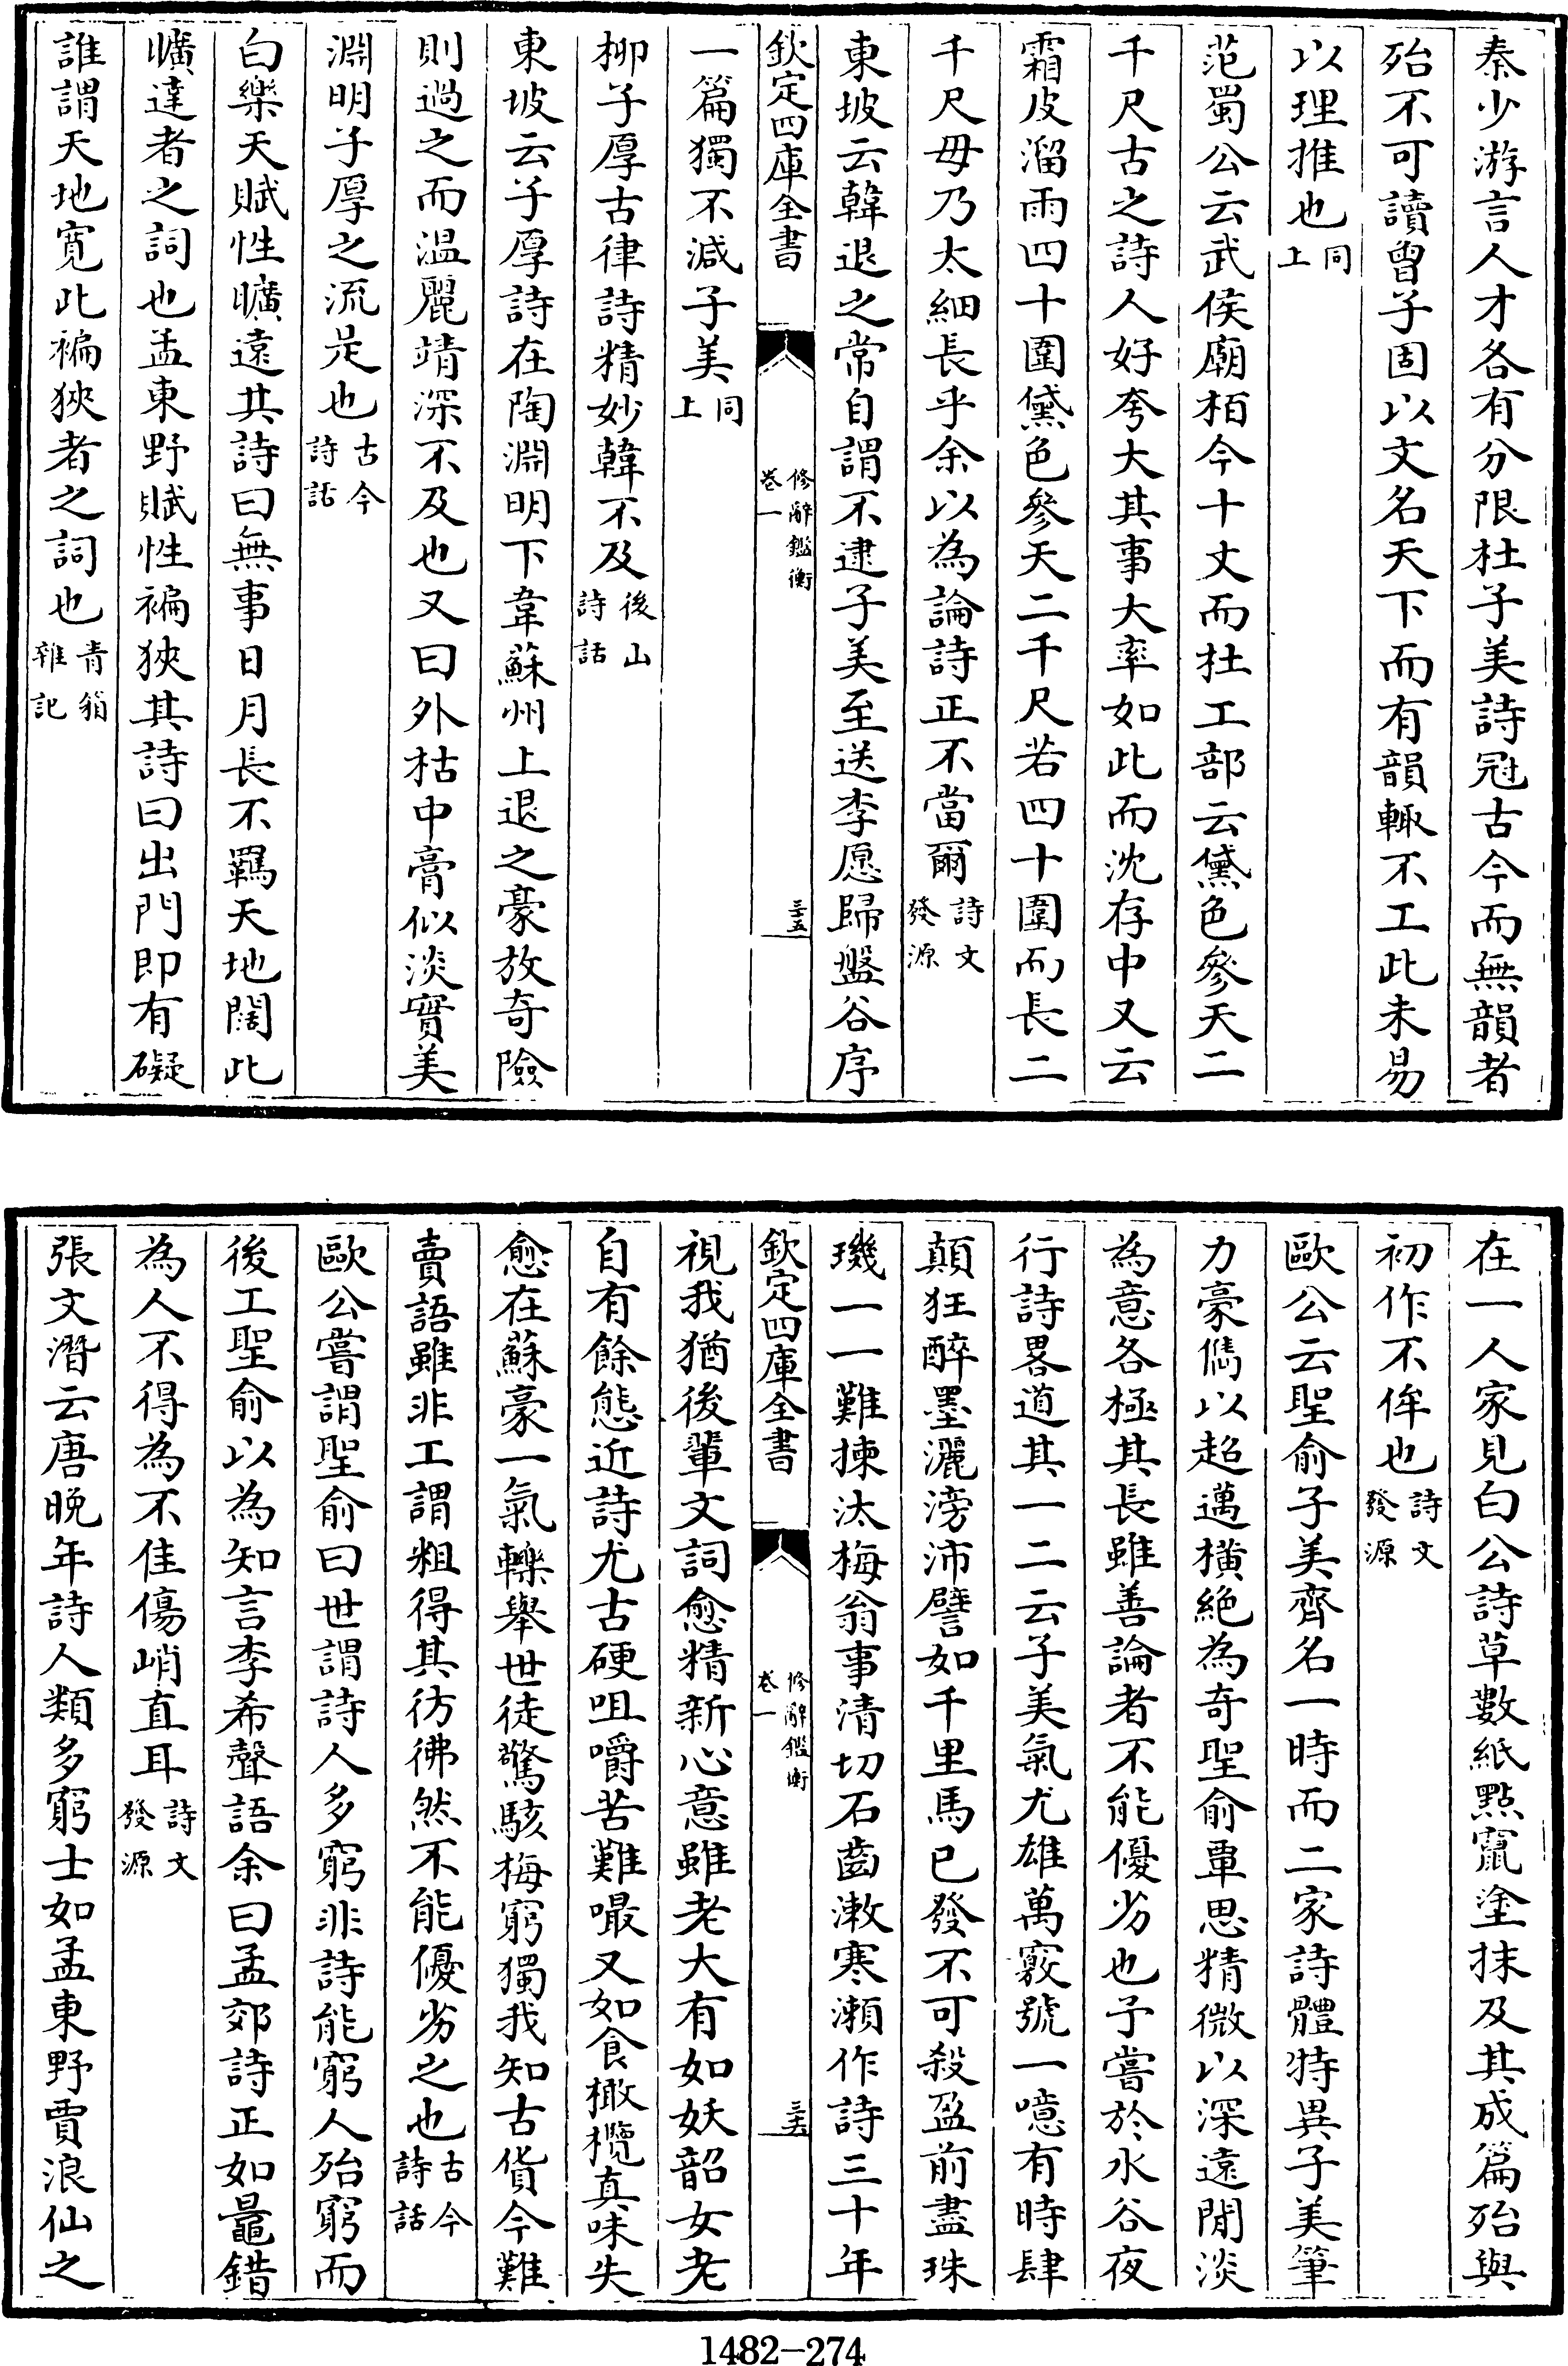 秦少游言人才各有分限杜子美詩冠古今而無韻者
殆不可讀曾子固以文名天下而有韻輙不工此未易
以理推也同上
范蜀公云武侯廟栢今十丈而杜工部云黛色參天二
千尺古之詩人好夸大其事大率如此而沈存中又云
霜皮溜雨四十圍黛色參天二千尺若四十圍而長二
千尺毋乃太細長乎余以為論詩正不當爾詩文發源
東坡云韓退之常自謂不逮子美至送李愿歸盤谷序
欽定四庫全書
修辭鑑衡
卷一
三五
一篇獨不減子美同上
柳子厚古律詩精妙韓不及後山詩話
東坡云子厚詩在陶淵明下韋蘇州上退之豪放奇險
則過之而温麗靖深不及也又曰外枯中膏似淡實美
淵明子厚之流是也古今詩話
白樂天賦性曠遠其詩曰無事日月長不羈天地闊此
曠達者之詞也孟東野賦性褊狹其詩曰出門即有礙
誰謂天地寛此褊狹者之詞也青箱雜記
在一人家見白公詩草數紙點竄塗抹及其成篇殆與
初作不侔也詩文發源
歐公云聖俞子美齊名一時而二家詩體特異子美筆
力豪儁以超邁橫絶為奇聖俞覃思精微以深遠閒淡
為意各極其長雖善論者不能優劣也予嘗於水谷夜
行詩畧道其一二云子美氣尤雄萬竅號一噫有時肆
顛狂醉墨灑滂沛譬如千里馬已發不可殺盈前盡珠
璣一一難揀汰梅翁事清切石齒漱寒瀨作詩三十年
欽定四庫全書
修辭鑑衡
卷一
三六
視我猶後輩文詞愈精新心意雖老大有如妖韶女老
自有餘態近詩尤古硬咀嚼苦難嘬又如食橄欖真味失
愈在蘇豪一氣轢舉世徒驚駭梅窮獨我知古貨今難
賣語雖非工謂粗得其彷彿然不能優劣之也古今詩話
歐公嘗謂聖俞曰世謂詩人多窮非詩能窮人殆窮而
後工聖俞以為知言李希聲語余曰孟郊詩正如鼂錯
為人不得為不佳傷峭直耳詩文發源
張文潛云唐晚年詩人類多窮士如孟東野賈浪仙之
1482-274